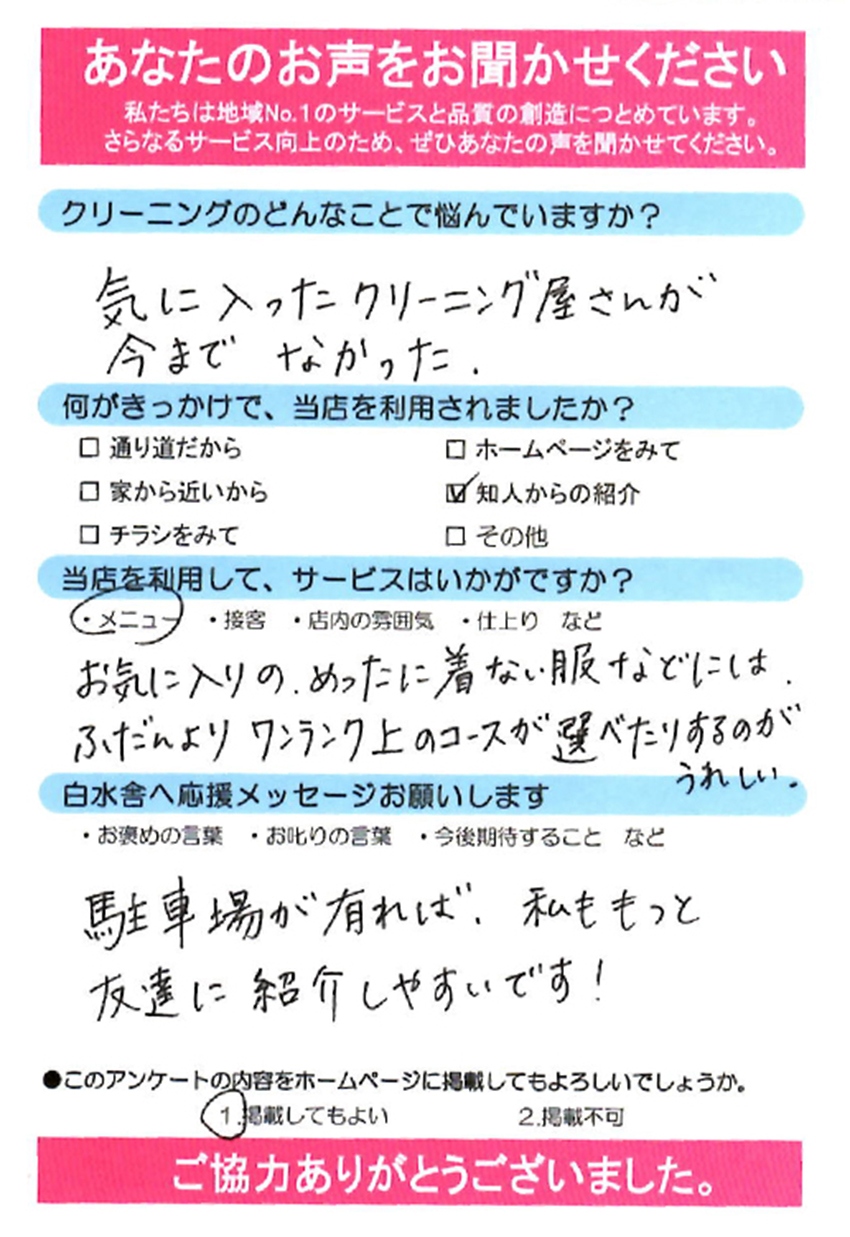 あなたのお声をお聞かせください
私たちは地域No.1のサービスと品質の創造につとめています。
さらなるサービス向上のため、ぜひあなたの声を聞かせてください。
クリーニングのどんなことで悩んでいますか？
気に入ったクリーニング屋さんが
今まで なかった.
何がきっかけで、当店を利用されましたか？
□ 通り道だから □ ホームページをみて
□ 家から近いから ☑ 知人からの紹介
□ チラシをみて □ その他
当店を利用して、サービスはいかがですか？
・メニュー ・接客 ・店内の雰囲気 ・仕上り など
お気に入りの、めったに着ない服などには、
ふだんより ワンランク上のコースが選べたりするのが
うれしい。
白水舎へ応援メッセージお願いします
・お褒めの言葉 ・お叱りの言葉 ・今後期待すること など
駐車場が有れば、私ももっと
友達に紹介しやすいです！
●このアンケートの内容をホームページに掲載してもよろしいでしょうか。
1.掲載してもよい 2.掲載不可
ご協力ありがとうございました。